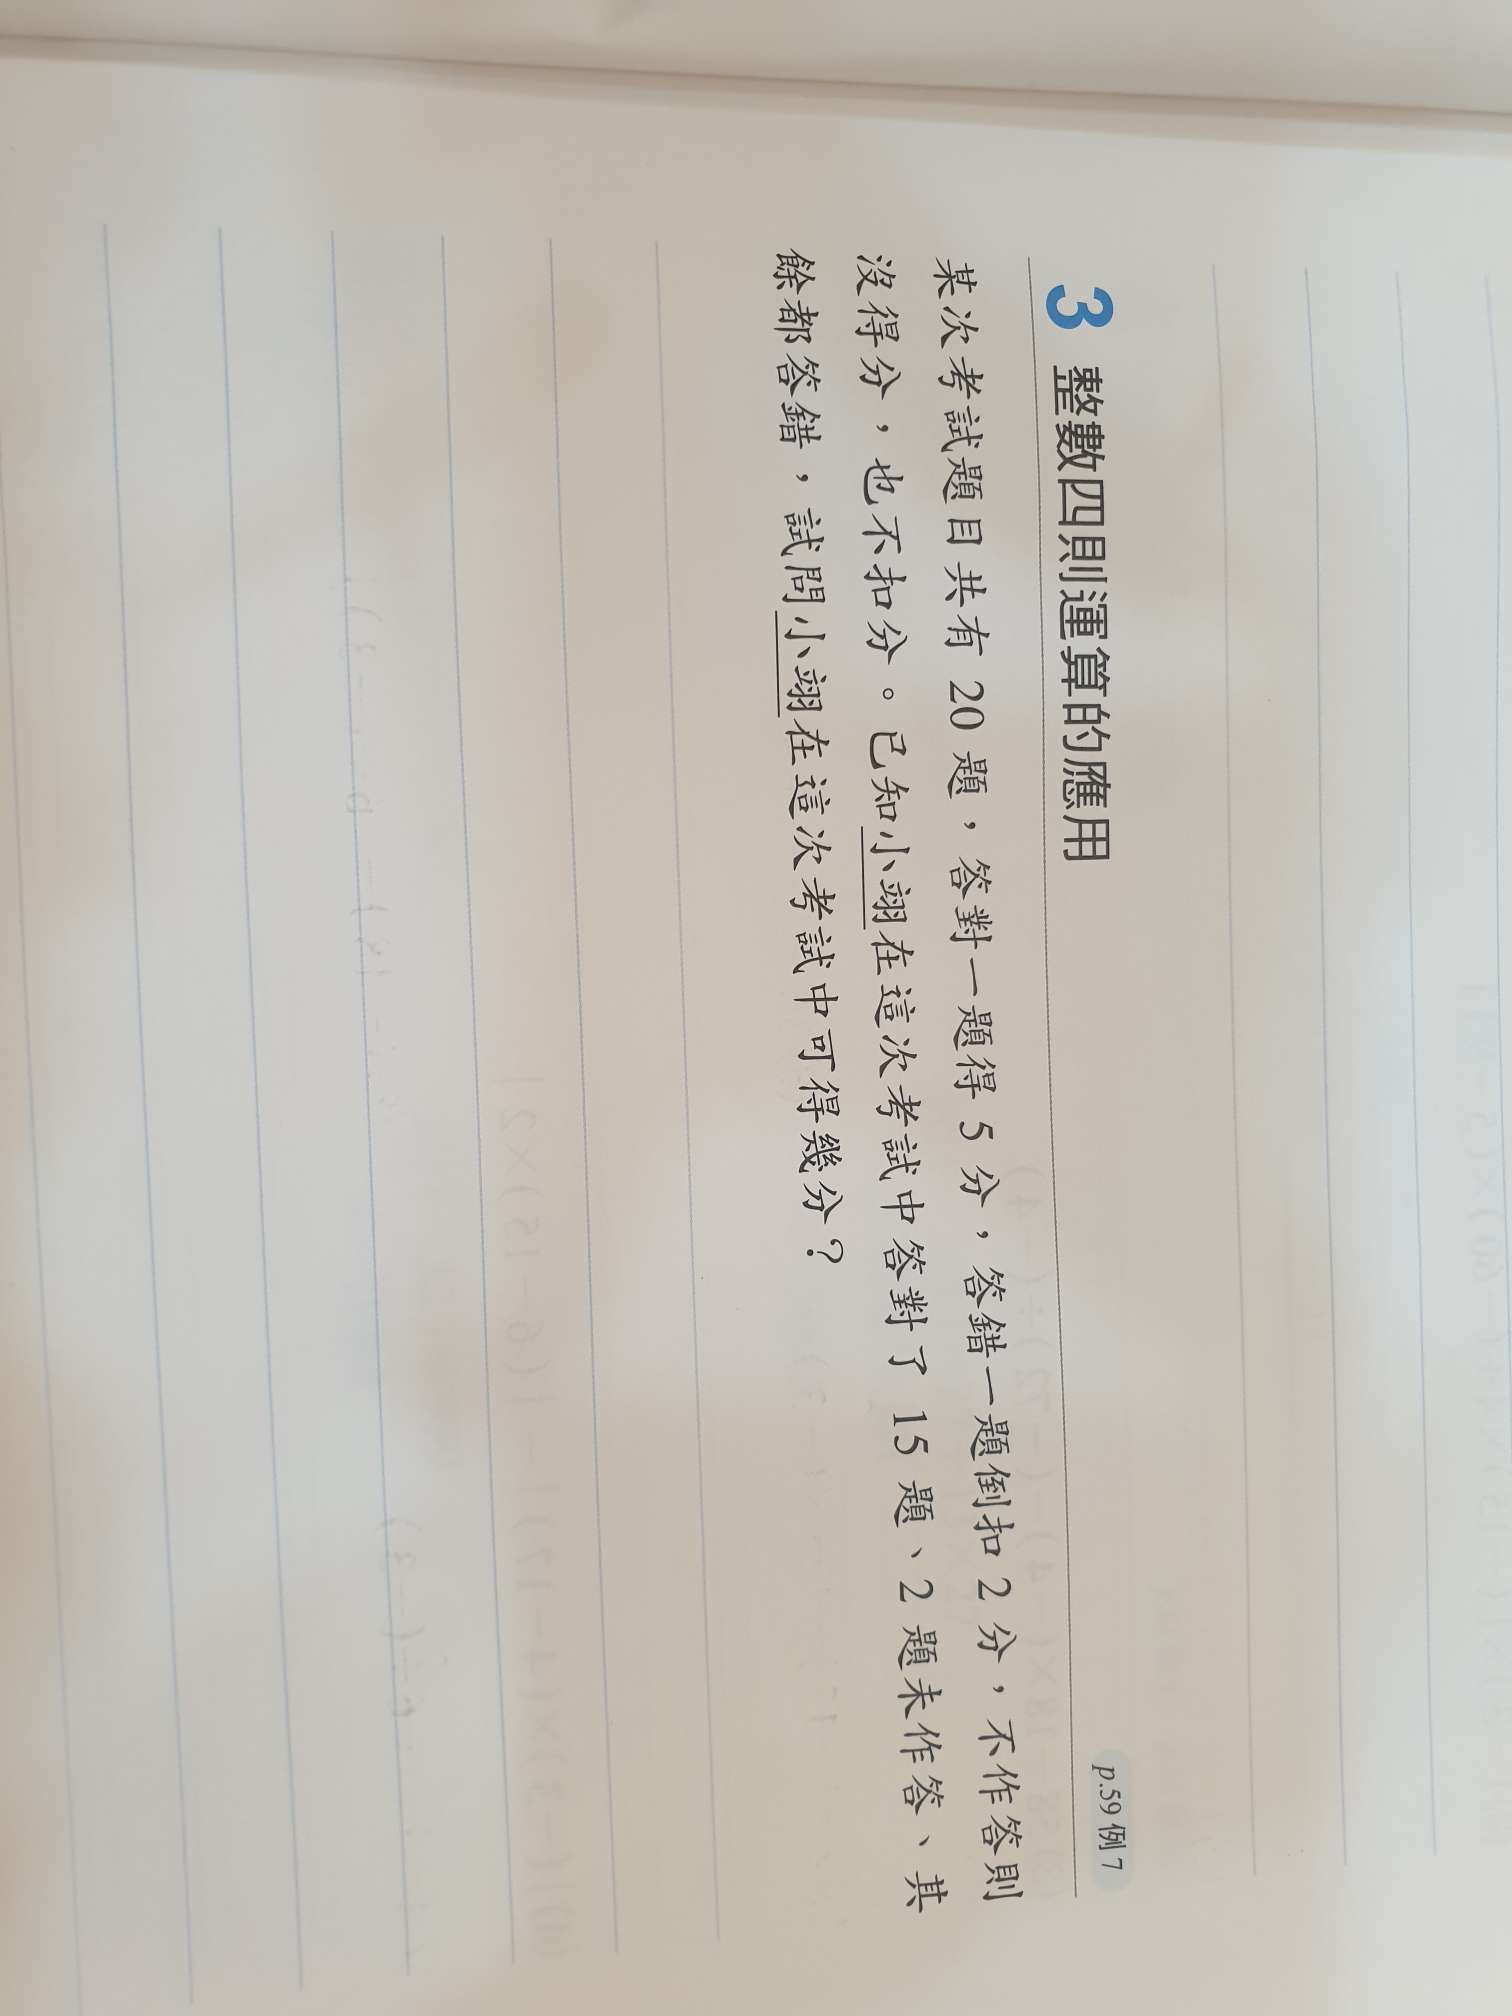 3 整數四則運算的應用 p.59 例 7
某次考試題目共有 20 題，答對一題得 5 分，答錯一題倒扣 2 分，不作答則
沒得分，也不扣分。已知小翊在這次考試中答對了 15 題、2 題未作答、其
餘都答錯，試問小翊在這次考試中可得幾分？